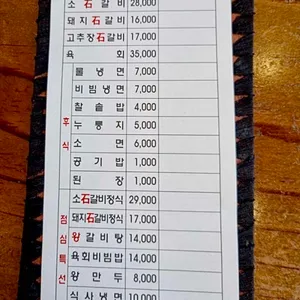 소石갈비 28,000
돼지石갈비 16,000
고추장石갈비 17,000
육회 35,000
물냉면 7,000
비빔냉면 7,000
찰솥밥 4,000
누룽지 5,000
소면 6,000
공기밥 1,000
된장 1,000
후식
소石갈비정식 29,000
돼지石갈비정식 17,000
왕갈비탕 14,000
육회비빔밥 14,000
왕만두 8,000
식사냉면 10,000
점심특선